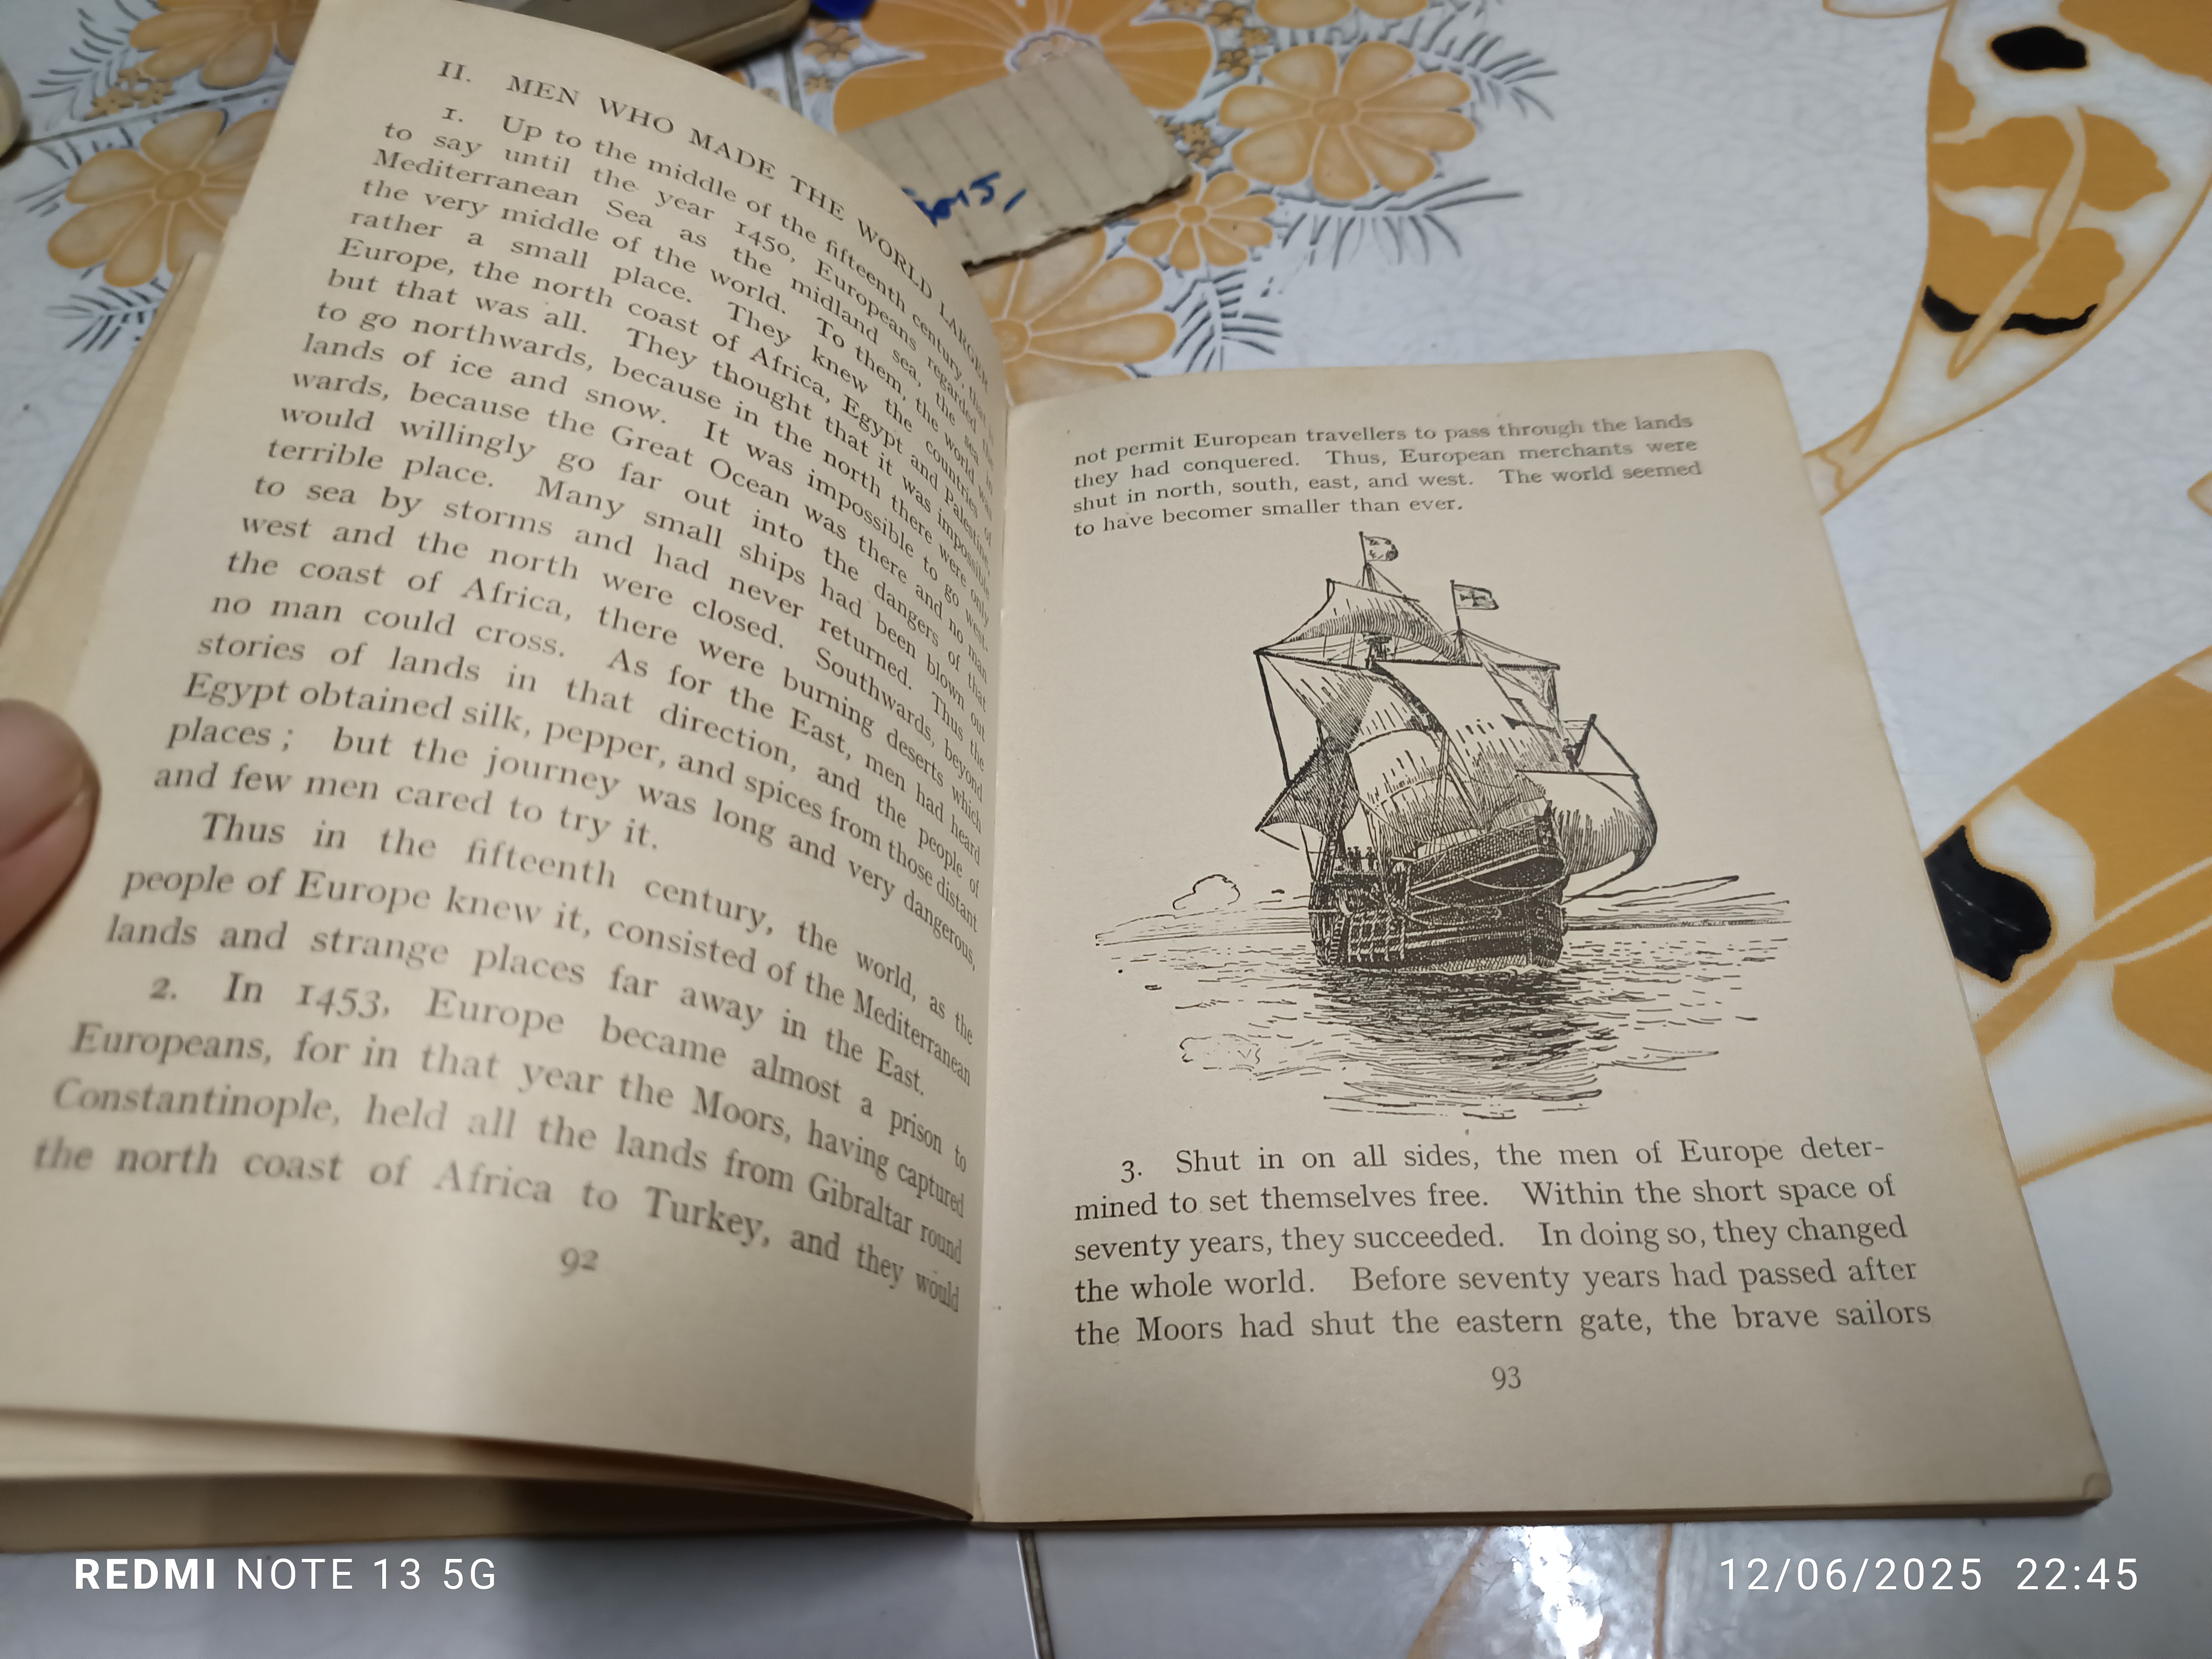 II. MEN WHO MADE THE WORLD LARGER
1. Up to the middle of the fifteenth century, that is
to say until the year 1450, Europeans regarded the
Mediterranean Sea as the midland sea, the sea in
the very middle of the world. To them, the world was
rather a small place. They knew the countries of
Europe, the north coast of Africa, Egypt and Palestine,
but that was all. They thought that it was impossible
to go northwards, because in the north there were only
lands of ice and snow. It was impossible to go west-
wards, because the Great Ocean was there and no man
would willingly go far out into the dangers of that
terrible place. Many small ships had been blown out
to sea by storms and had never returned. Thus the
west and the north were closed. Southwards, beyond
the coast of Africa, there were burning deserts which
no man could cross. As for the East, men had heard
stories of lands in that direction, and the people of
Egypt obtained silk, pepper, and spices from those distant
places; but the journey was long and very dangerous,
and few men cared to try it.
Thus in the fifteenth century, the world, as the
people of Europe knew it, consisted of the Mediterranean
lands and strange places far away in the East.
2. In 1453, Europe became almost a prison to
Europeans, for in that year the Moors, having captured
Constantinople, held all the lands from Gibraltar round
the north coast of Africa to Turkey, and they would
92
not permit European travellers to pass through the lands
they had conquered. Thus, European merchants were
shut in north, south, east, and west. The world seemed
to have becomer smaller than ever.
3. Shut in on all sides, the men of Europe deter-
mined to set themselves free. Within the short space of
seventy years, they succeeded. In doing so, they changed
the whole world. Before seventy years had passed after
the Moors had shut the eastern gate, the brave sailors
93
REDMI NOTE 13 5G
12/06/2025 22:45